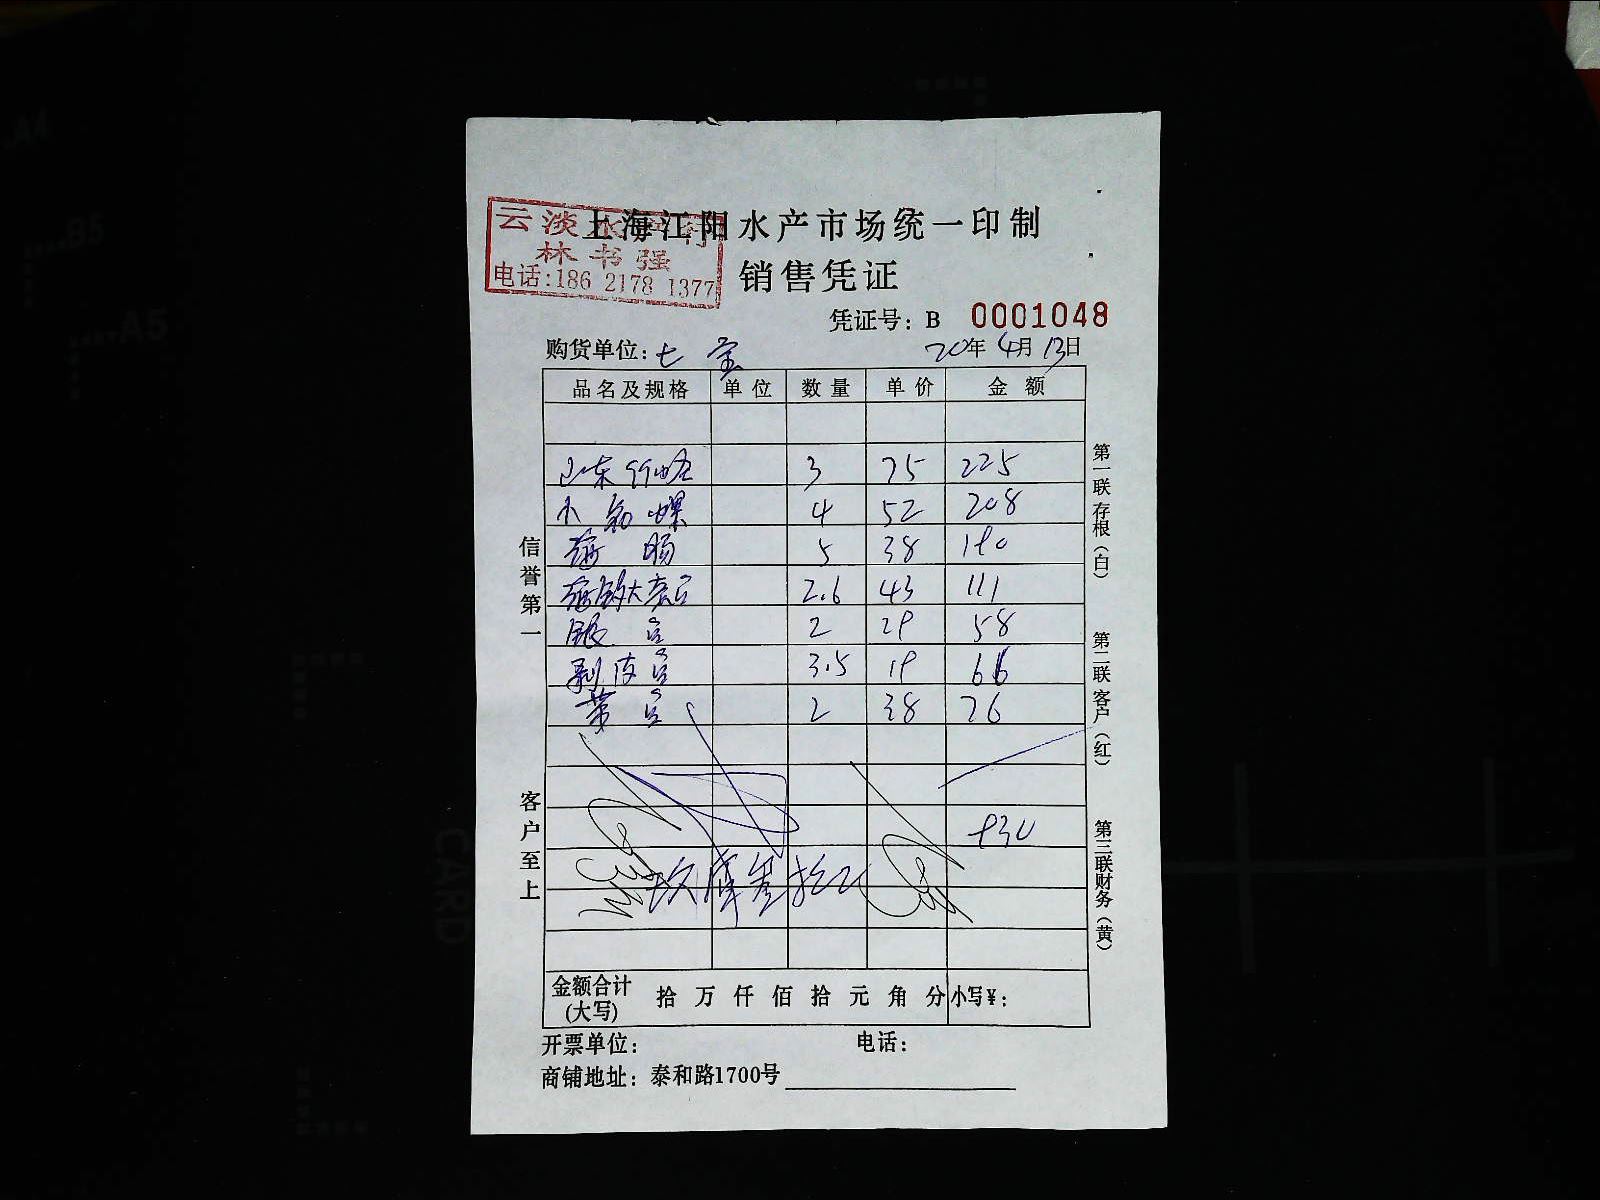 上海江阳水产市场统一印制
云淡水产行
林书强
电话:186 2178 1377
销售凭证
凭证号: B 0001048
购货单位: 七宝 20年4月13日
品名及规格 单位 数量 单价 金额
山东 3 75 225
小 螺 4 52 208
海肠 5 38 190
2.6 43 111
银 2 29 58
剥皮 3.5 19 66
2 38 76
930
玖佰叁拾元
金额合计(大写) 拾 万 仟 佰 拾 元 角 分 小写¥:
开票单位: 电话:
商铺地址: 泰和路1700号
信誉第一
客户至上
第一联存根(白)
第二联客户(红)
第三联财务(黄)
A4
B5
A5
CARD